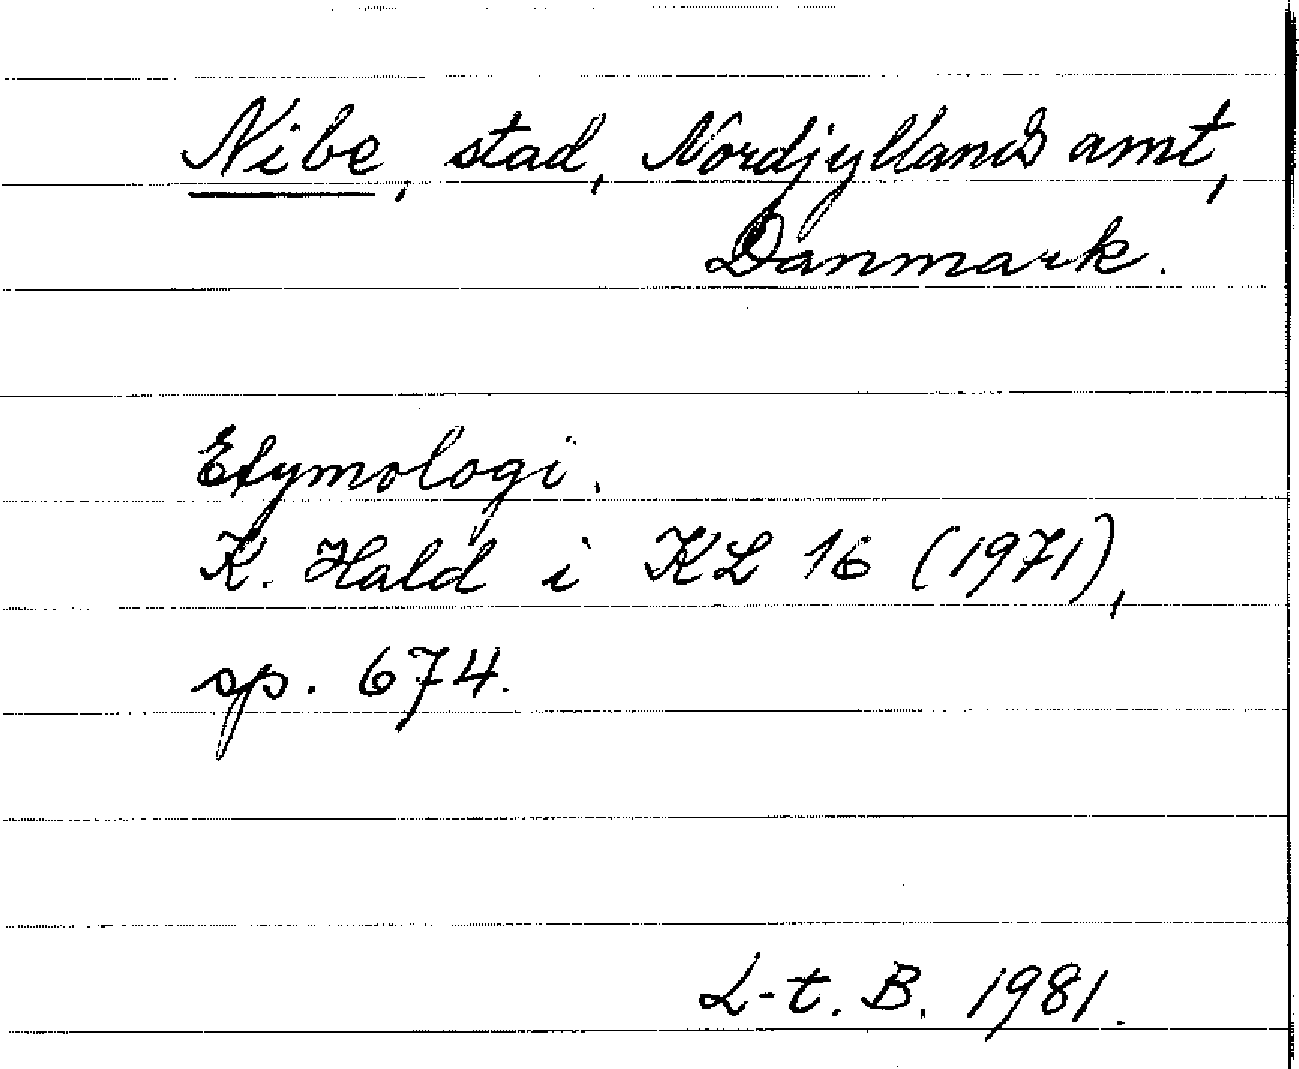 Nibe, stad, Nordjyllands amt,
Danmark.
Etymologi.
K. Hald i KL 16 (1971),
sp. 674.
L-t. B. 1981.